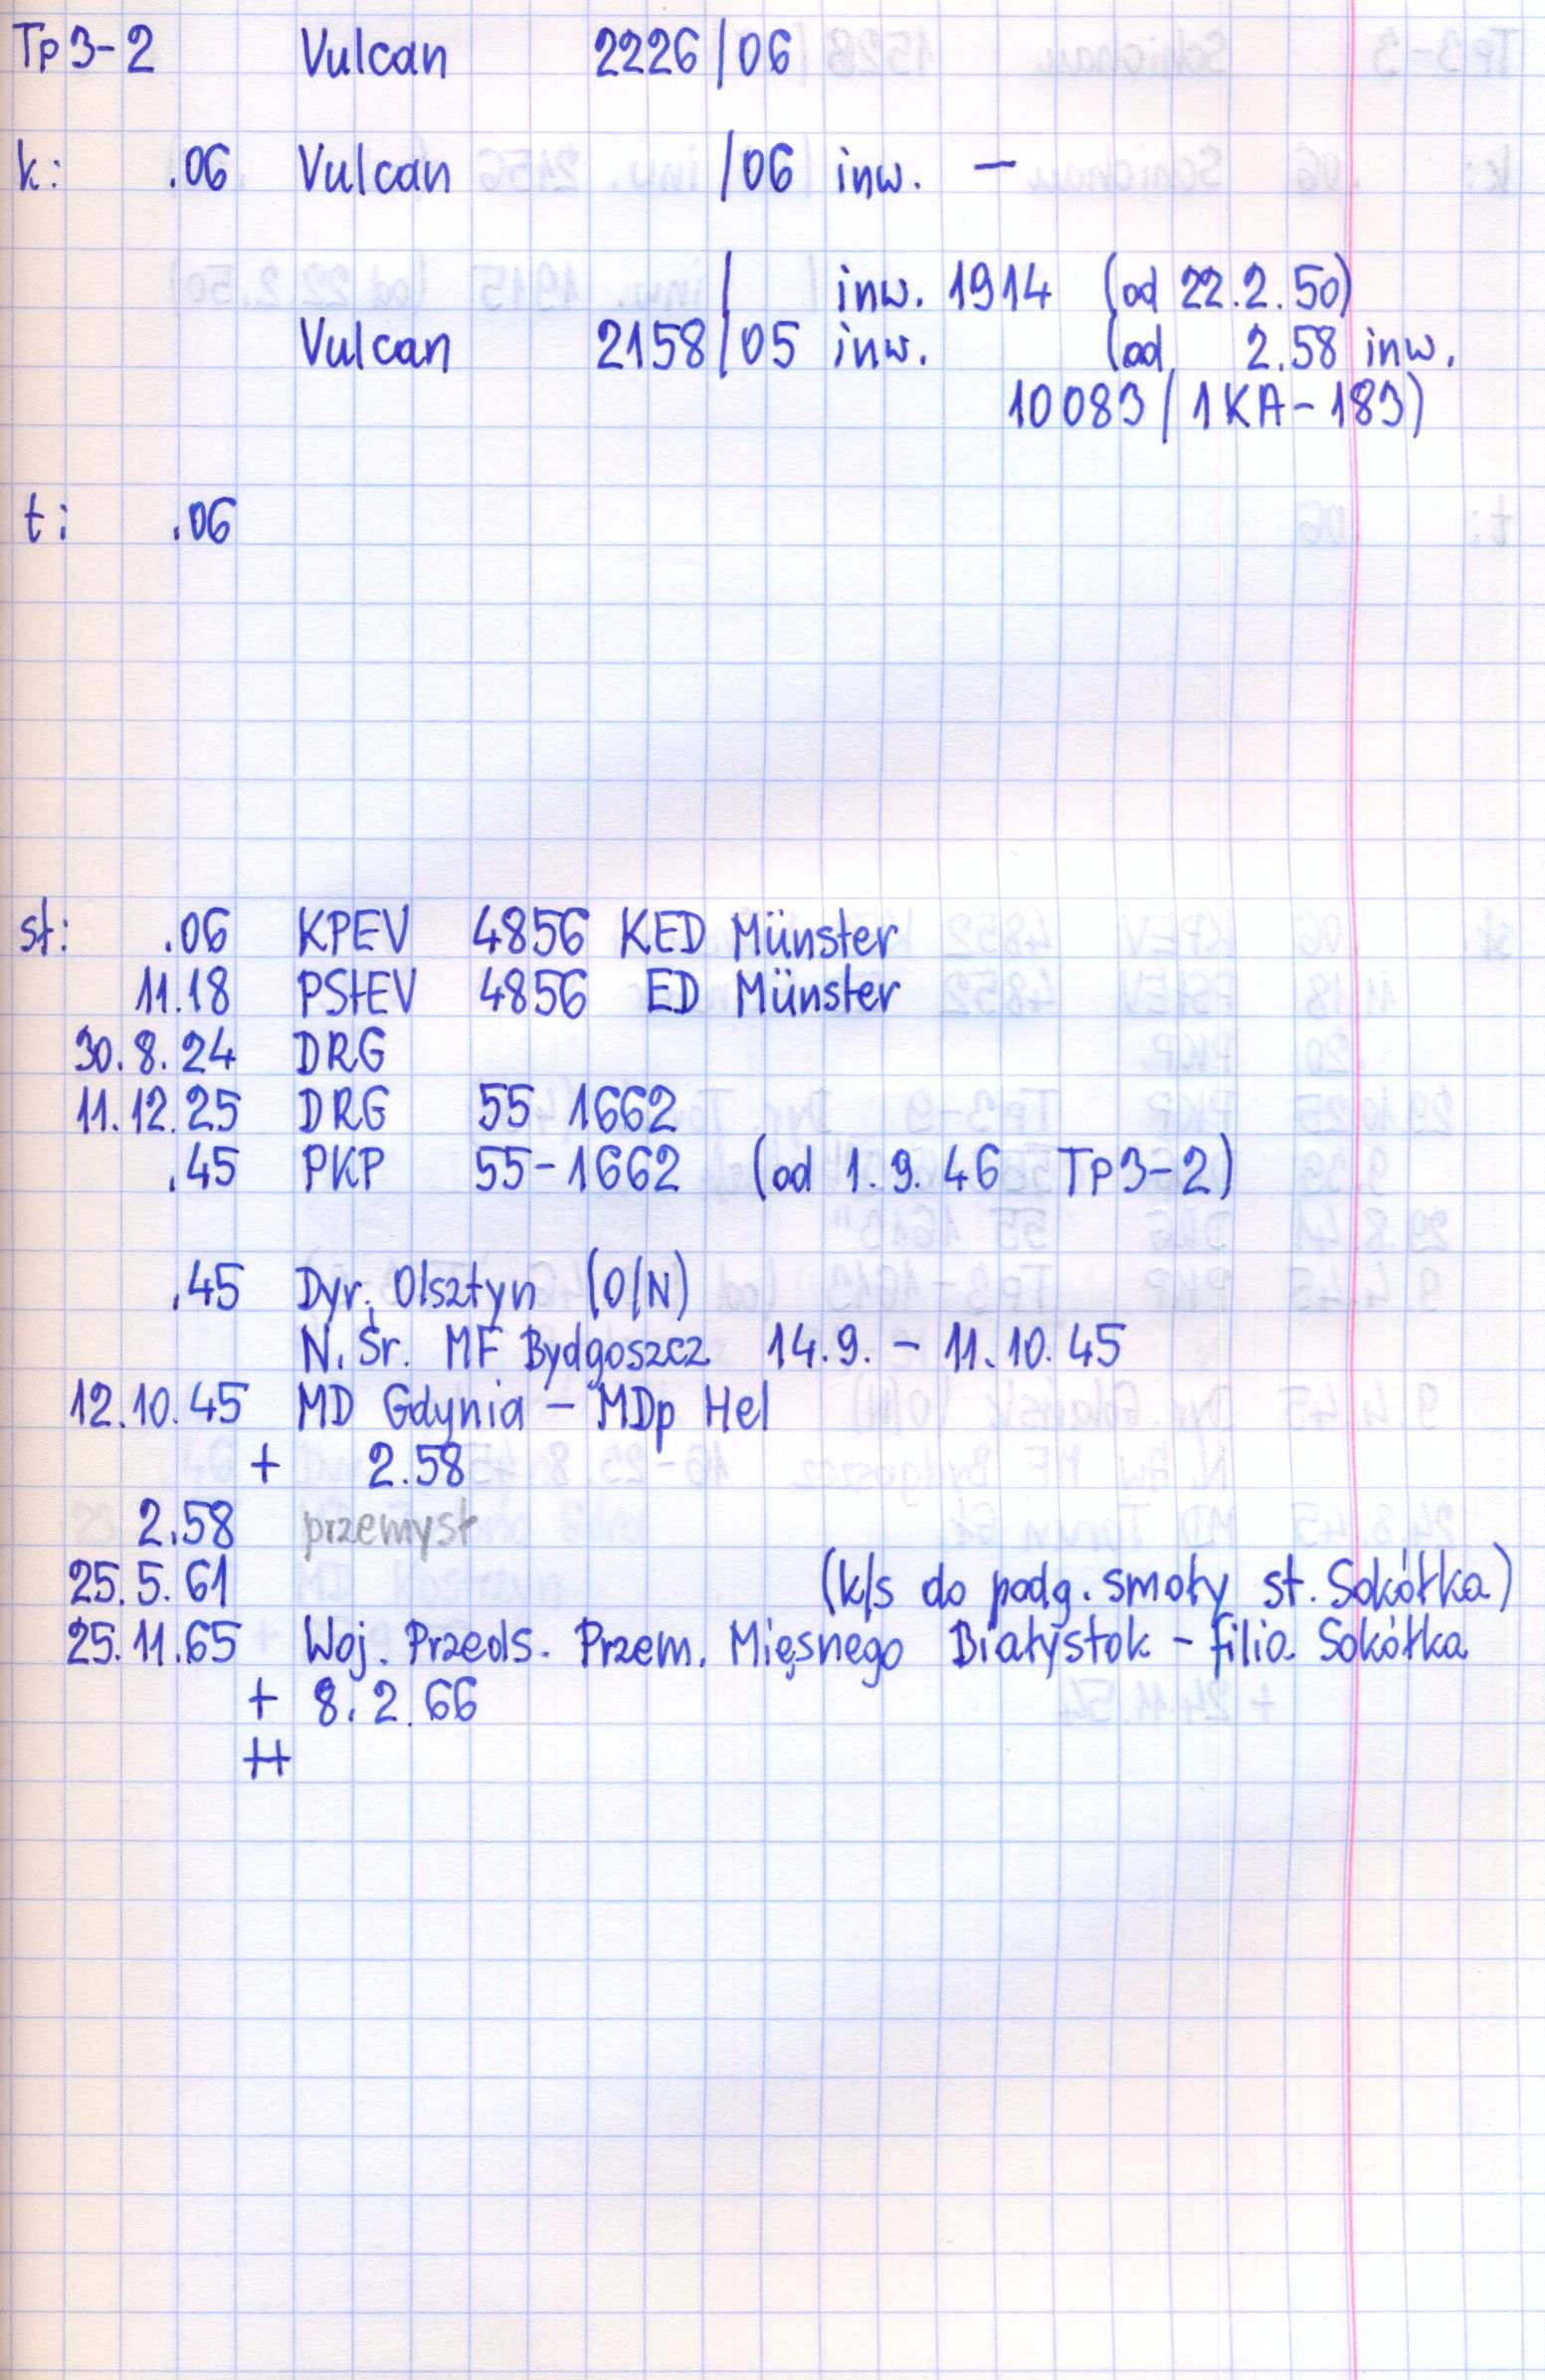 Tp3-2 Vulcan 2226/06
k: .06 Vulcan /06 inw. —
/ inw. 1914 (od 22.2.50)
Vulcan 2158/05 inw. (od 2.58 inw.
10083/1KA-183)
t: .06
st: .06 KPEV 4856 KED Münster
11.18 PStEV 4856 ED Münster
30.8.24 DRG
11.12.25 DRG 55 1662
.45 PKP 55-1662 (od 1.9.46 Tp3-2)
.45 Dyr. Olsztyn (O/N)
N. Śr. MF Bydgoszcz 14.9. - 11.10.45
12.10.45 MD Gdynia - MDp Hel
+ 2.58
2.58 przemysł
25.5.61 (k/s do podg. smoły st. Sokółka)
25.11.65 Woj. Przeds. Przem. Mięsnego Białystok - filia Sokółka
+ 8.2.66
++